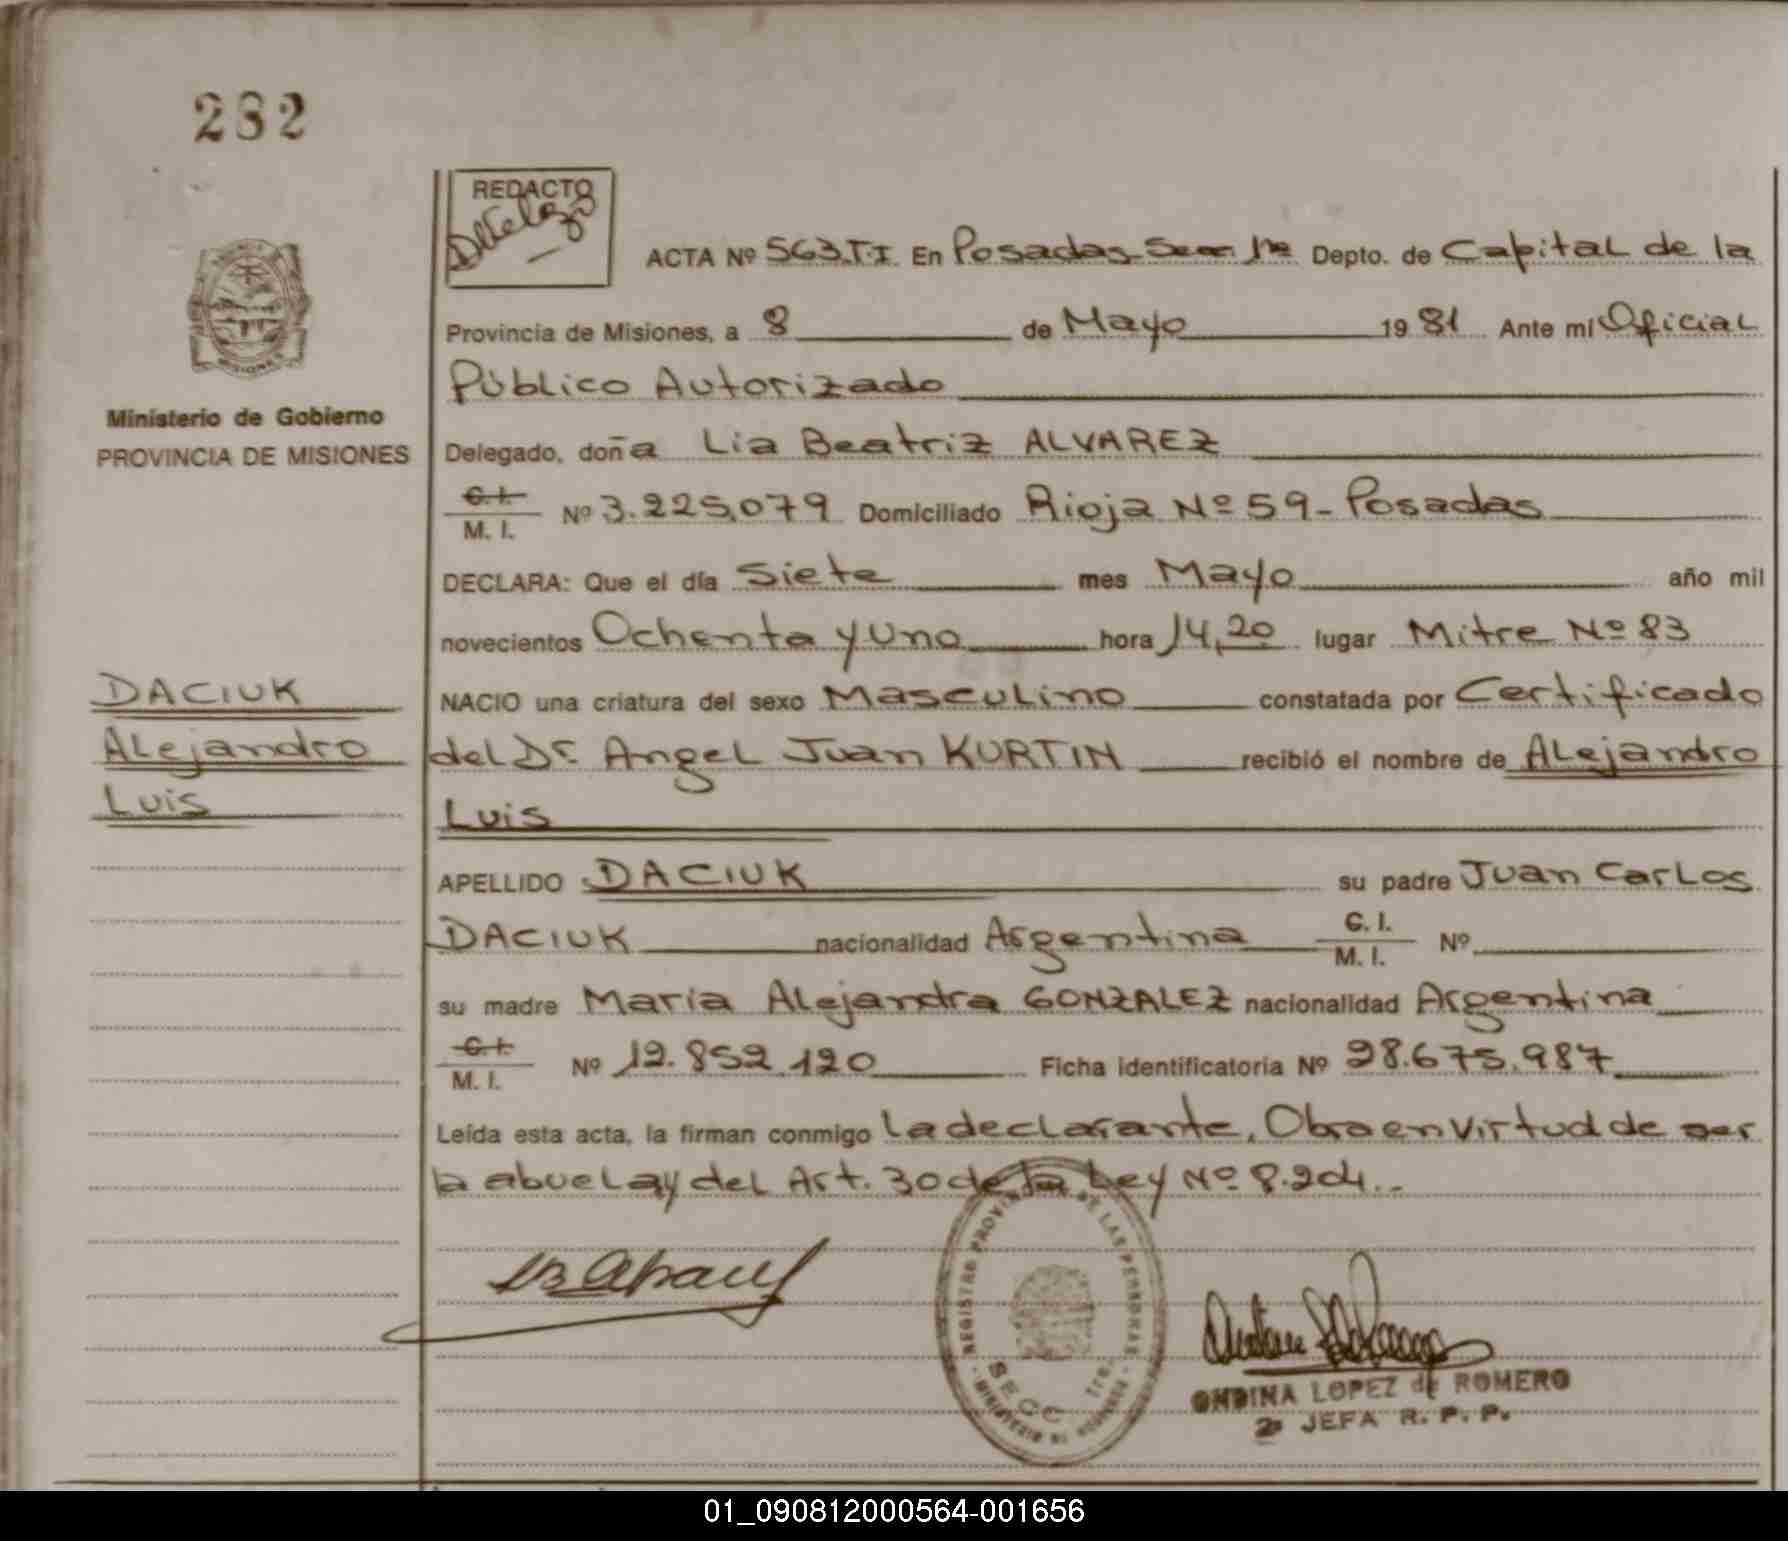 282
REDACTO
ACTA Nº 563.T.I. En Posadas Secc 1ra Depto. de Capital de la
Provincia de Misiones, a 8 de Mayo 1981 Ante mí Oficial
Público Autorizado
Ministerio de Gobierno
PROVINCIA DE MISIONES
Delegado, doña Lia Beatriz ALVAREZ
C. I.
M. I. Nº 3.225.079 Domiciliado Rioja Nº 59 - Posadas
DECLARA: Que el día Siete mes Mayo año mil
novecientos Ochenta y Uno hora 14,20 lugar Mitre Nº 83
NACIO una criatura del sexo Masculino constatada por Certificado
del Dr. Angel Juan KURTIN recibió el nombre de Alejandro
Luis
DACIUK
Alejandro
Luis
APELLIDO DACIUK su padre Juan Carlos
DACIUK nacionalidad Argentina C. I.
M. I. Nº
su madre María Alejandra GONZALEZ nacionalidad Argentina
C. I.
M. I. Nº 12.852.120 Ficha identificatoria Nº 28.675.987
Leída esta acta, la firman conmigo la declarante, Obra en virtud de ser
la abuela y del Art. 30 de la Ley Nº 8.204.-
REGISTRO PROVINCIAL DE LAS PERSONAS
SECC. 1ra.
MINISTERIO DE GOBIERNO
ONDINA LOPEZ de ROMERO
2ª JEFA R. P. P.
01_090812000564-001656